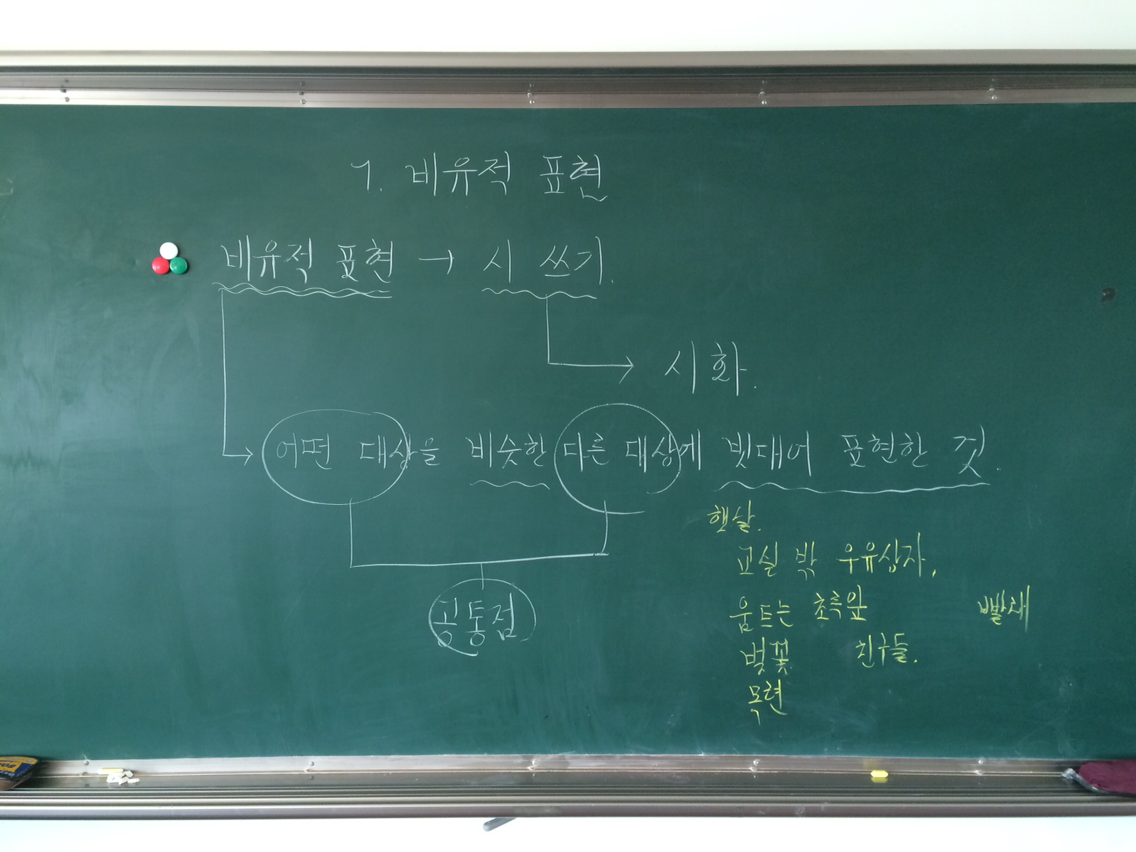 1. 비유적 표현
비유적 표현 → 시 쓰기.
시화.
어떤 대상을 비슷한 다른 대상에 빗대어 표현한 것.
공통점
햇살.
교실 밖 우유상자.
움트는 초록잎 빨래
벚꽃 친구들.
목련